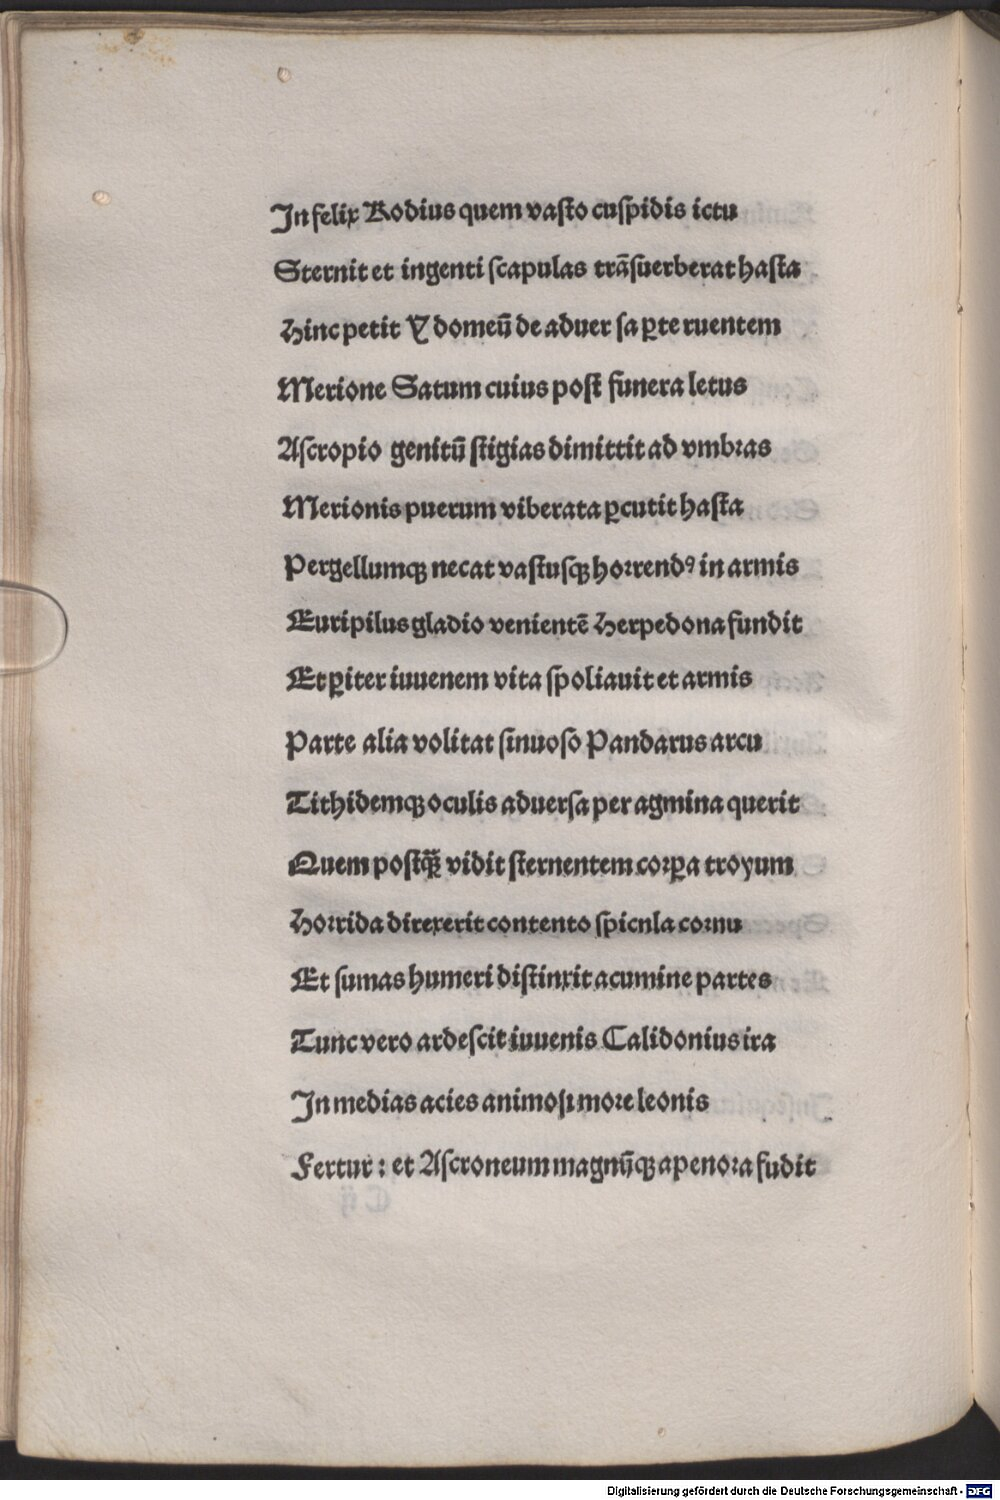 In felix Rodius quem vasto cuſpidis ictu
Sternit et ingenti ſcapulas trãſuerberat haſta
Hinc petit Ydomeũ de aduer ſa ꝑte ruentem
Merione Satum cuius poſt funera letus
Aſcropio genitũ ſtigias dimittit ad vmbꝛas
Merionis puerum viberata ꝑcutit haſta
Pergellumqꝫ necat vaſtuſqꝫ hoꝛrendꝰ in armis
Euripilus gladio venientẽ Herpedona fundit
Et ꝑiter iuuenem vita ſpoliauit et armis
Parte alia volitat ſinuoſo Pandarus arcu
Tithidemqꝫ oculis aduerſa per agmina querit
Quem poſtqꝫ̃ vidit ſternentem coꝛꝑa troyum
Hoꝛrida direxerit contento ſpicnla coꝛnu
Et ſumas humeri diſtinxit acumine partes
Tunc vero ardeſcit iuuenis Calidonius ira
In medias acies animoſi moꝛe leonis
Fertur: et Aſcroneum magnũqꝫ apenoꝛa fudit
Digitalisierung gefördert durch die Deutsche Forschungsgemeinschaft - DFG